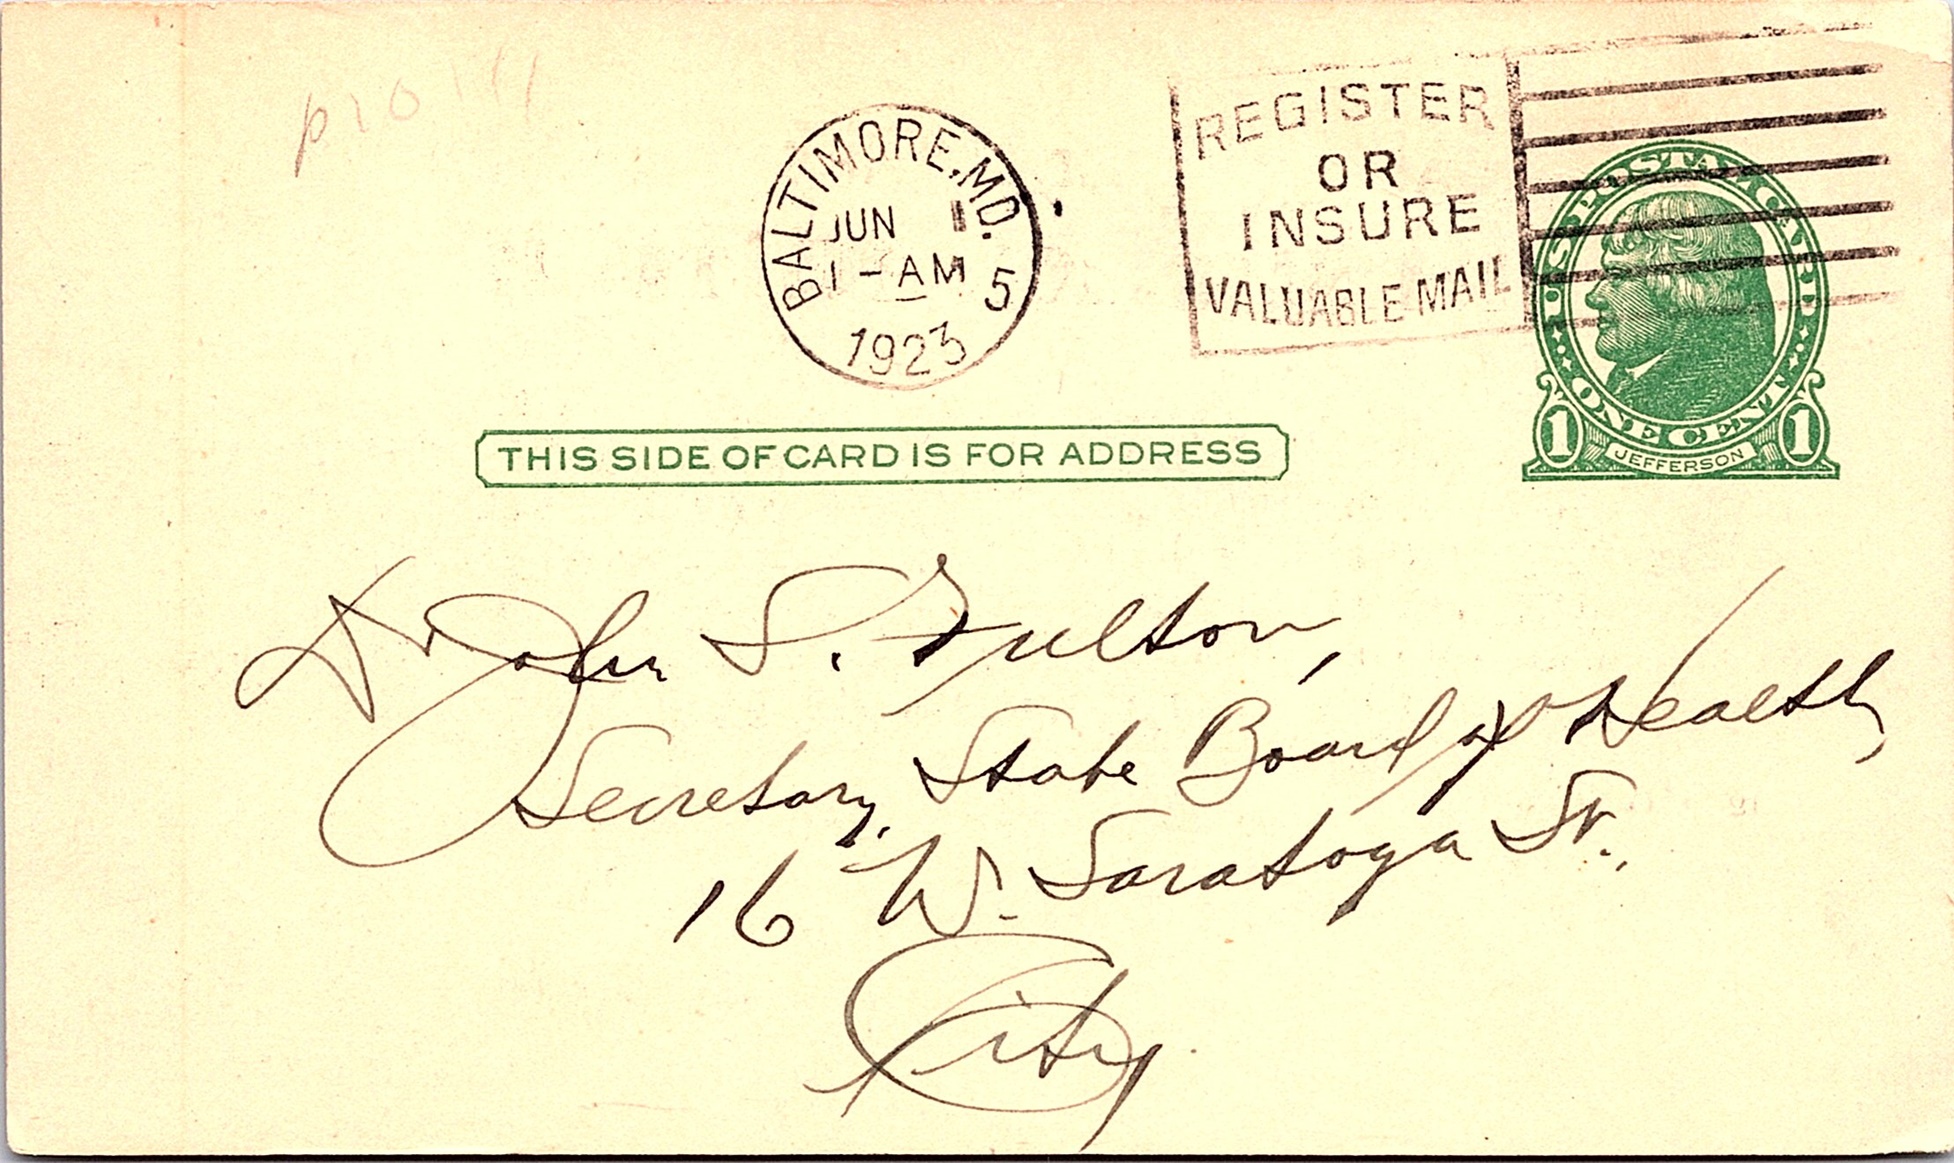 BALTIMORE, MD.
JUN 1
1-AM
5
1923
REGISTER
OR
INSURE
VALUABLE MAIL
U·S·POSTAL CARD
ONE CENT
1 JEFFERSON 1
THIS SIDE OF CARD IS FOR ADDRESS
John S. Fulton,
Secretary, State Board of Health,
16 W. Saratoga St.,
City